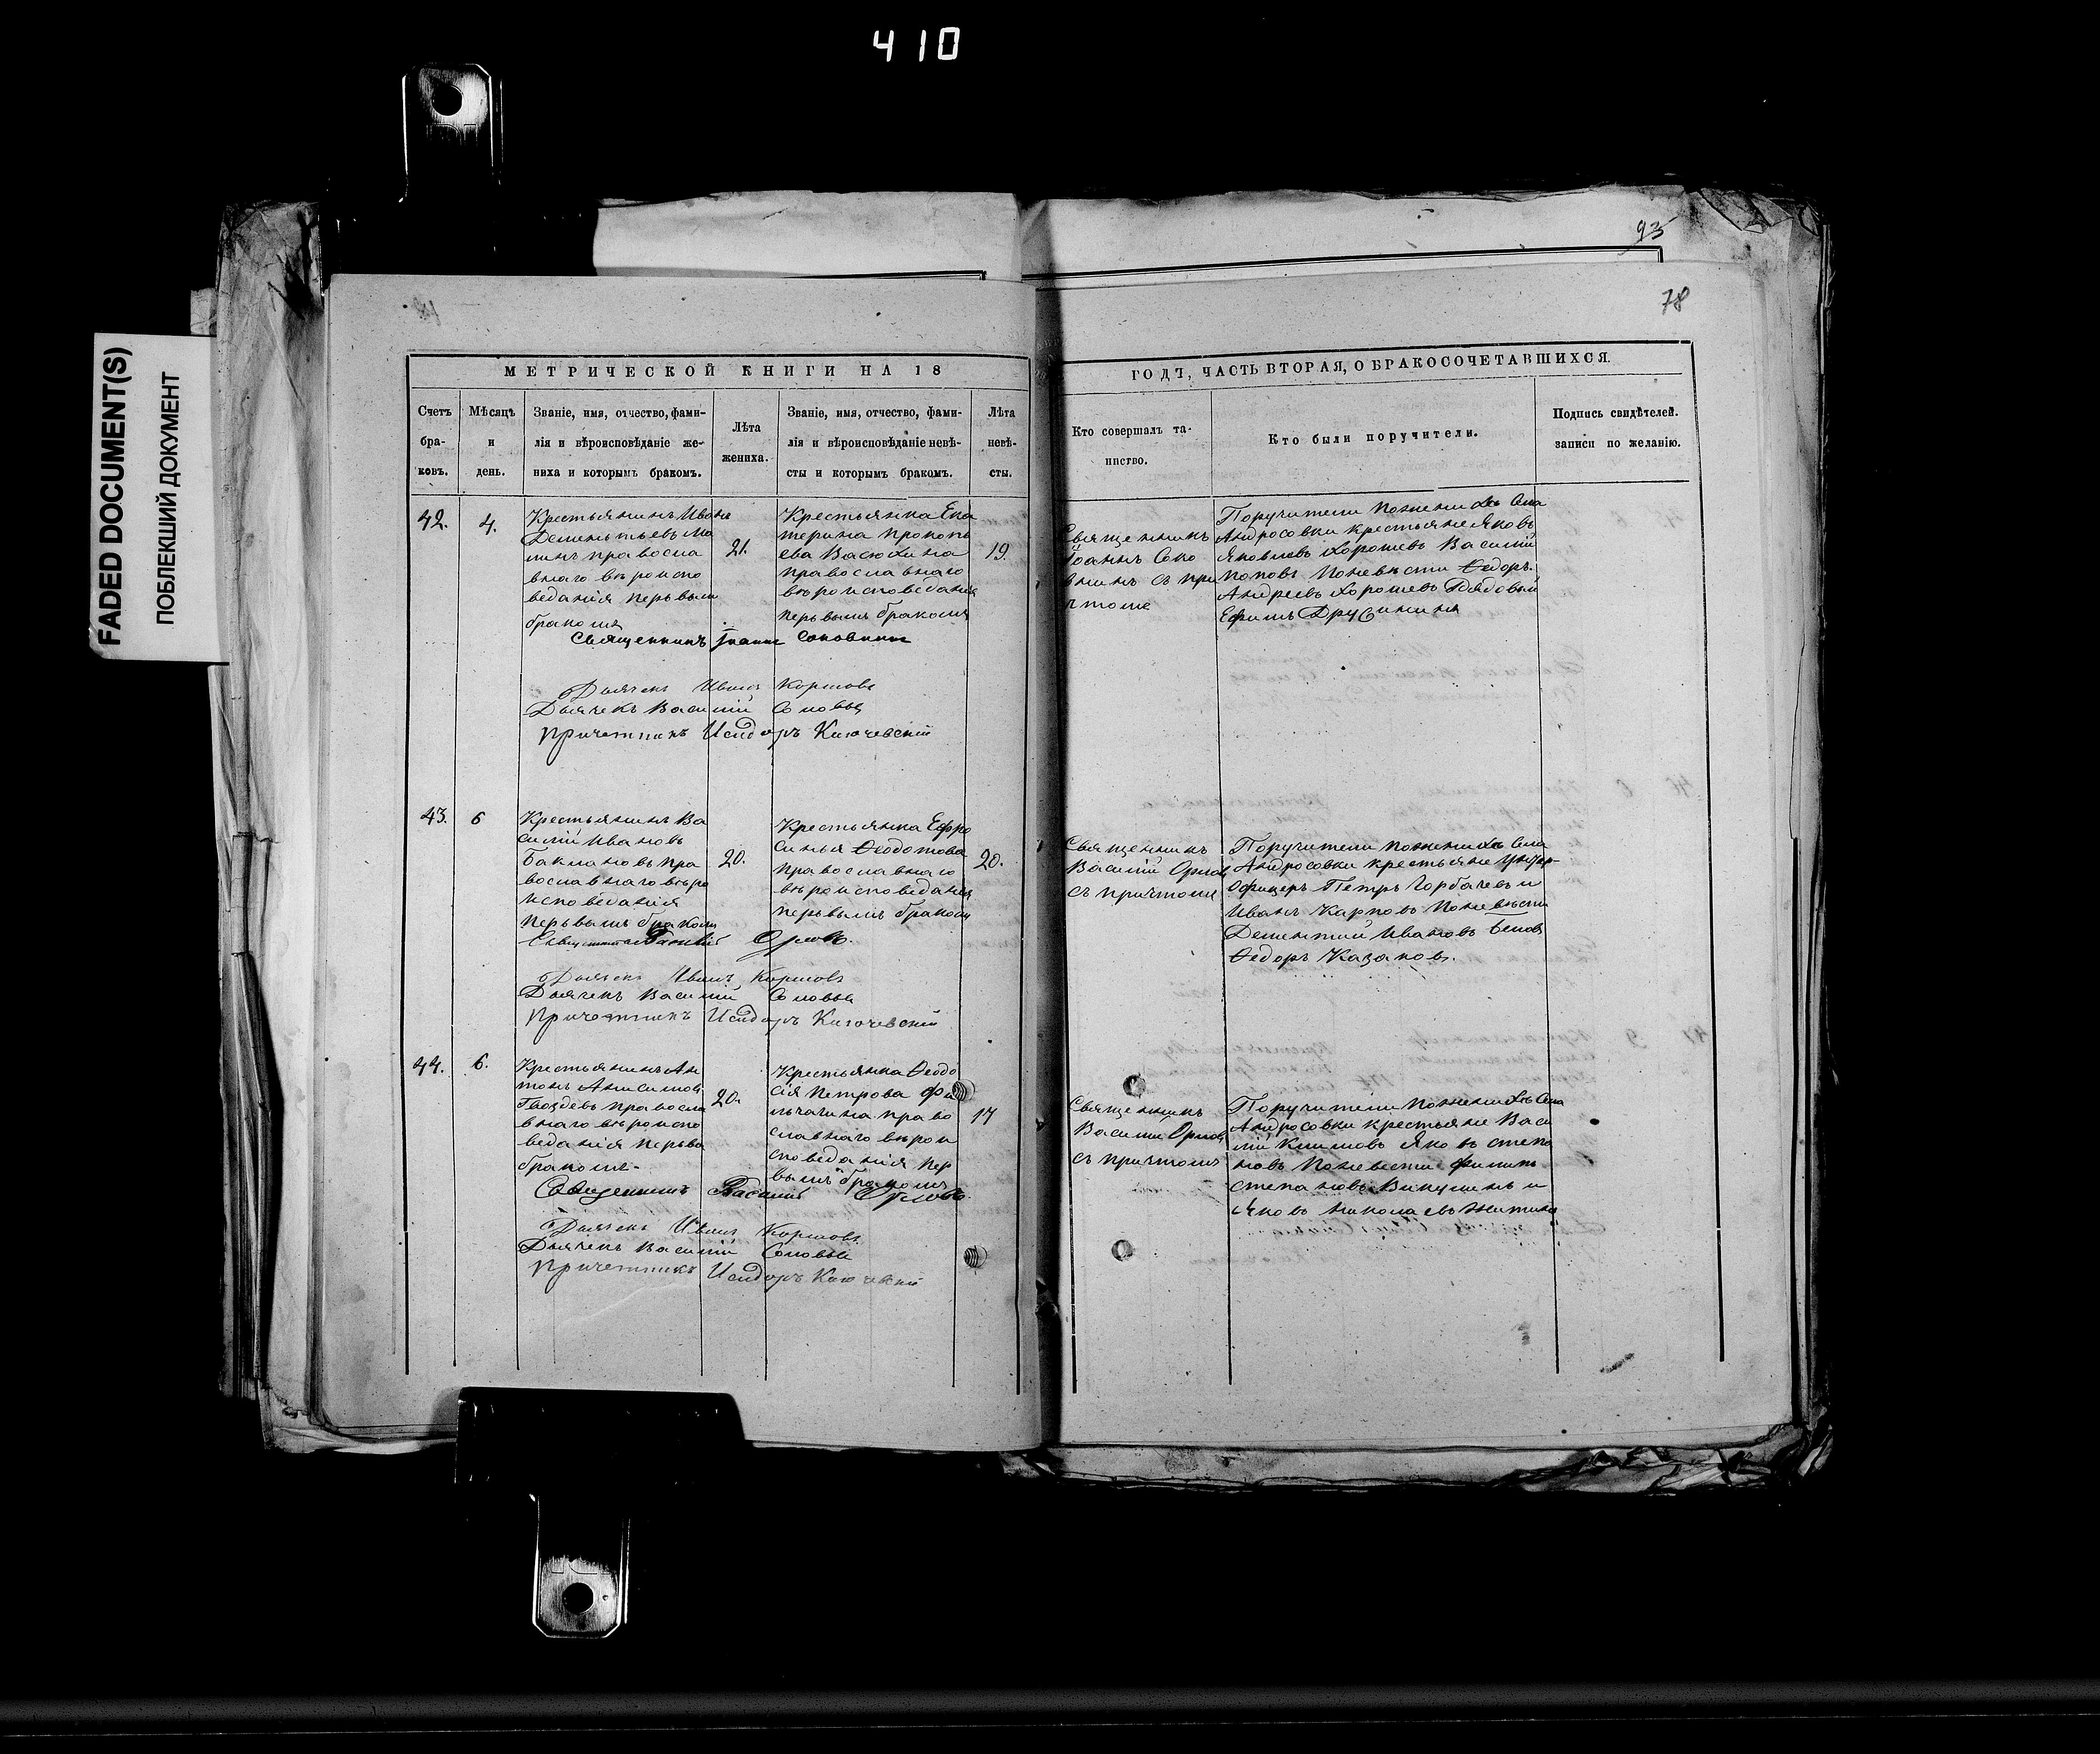 410
93
78
FADED DOCUMENT(S)
ПОБЛЕКШИЙ ДОКУМЕНТ
МЕТРИЧЕСКОЙ КНИГИ НА 18
ГОДЪ, ЧАСТЬ ВТОРАЯ, О БРАКОСОЧЕТАВШИХСЯ.
Счетъ
бра-
ковъ.
Мѣсяцъ
и
день.
Званіе, имя, отчество, фами-
лія и вѣроисповѣданіе же-
ниха и которымъ бракомъ.
Лѣта
жениха.
Званіе, имя, отчество, фами-
лія и вѣроисповѣданіе невѣ-
сты и которымъ бракомъ.
Лѣта
невѣ-
сты.
Кто совершалъ та-
инство.
Кто были поручители.
Подпись свидѣтелей.
записи по желанію.
42.
4.
Крестьянинъ Иванъ
Дементьевъ
православ
наго вѣроиспо
веданія первым
бракомъ
21.
Крестьянка Ека
терина Прокопь
ева Васюхина
православнаго
вѣроисповеданія
первымъ бракомъ
19.
Священникъ
Іоаннъ Соко
внинъ съ при
чтомъ
Поручители Пожениху Села
Андросовки крестьяне Яковъ
Яковлевъ Хорошевъ Василій
Поповъ Поневѣсти Ѳедоръ
Андреевъ Хорошевъ Рядовый
Ефимъ
Священникъ Іоаннъ Соковнинъ
Дьячекъ Иванъ Коршовъ
Дьячекъ Василій Соловьи
Причетникъ Исидоръ Ключевскій
43.
6
Крестьянинъ Ва
силій Ивановъ
Баклановъ пра
вославнаго вѣро
исповеданія
первымъ бракомъ
20.
Крестьянка Ефро
синья Ѳеодотова
православнаго
вѣроисповеданія
первымъ бракомъ
20.
Священникъ
Василій Орлов
съ причтомъ
Поручители пожениху Села
Андросовки крестьяне Унтер-
Офицеръ Петръ Горбачевъ и
Иванъ Карповъ Поневѣсти
Дементий Ивановъ Беловъ
Ѳедоръ Казаковъ.
Священникъ Василій Орловъ.
Дьячекъ Иванъ Коршовъ
Дьячекъ Василій Соловьи
Причетникъ Исидоръ Ключевскій
44.
6.
Крестьянинъ Ан
тонъ Анисимов
Гвоздевъ православ
наго вѣроиспо
веданія первы
бракомъ
20.
Крестьянка Ѳеодо
сія Петрова Фи
личагина право
славнаго вѣрои
споведанія пер
вымъ бракомъ
17
Священникъ
Василій Орловъ
съ причтомъ
Поручители Пожениху Села
Андросовки крестьяне Васи
лій Климовъ Яковъ степа
новъ Поневѣсти Филипъ
степановъ Викулинъ и
Яковъ Николаевъ
Священникъ Василій Орловъ.
Дьячекъ Иванъ Коршовъ
Дьячекъ Василій Соловьи
Причетникъ Исидоръ Ключевскій